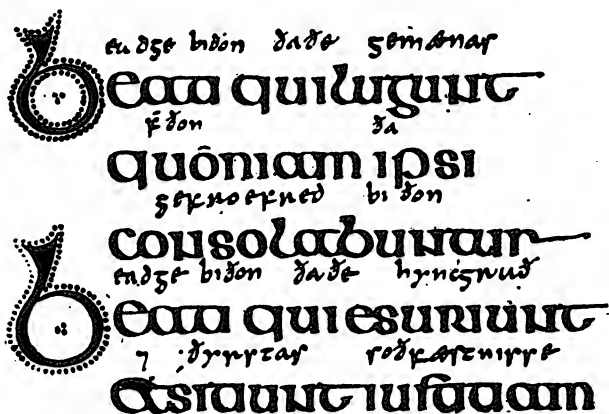 eadge biðon ða ðe gemænas
Beati qui lugunt
f̄ðon ða
quōniam ipsi
gefroefred bi ðon
consolabuntur
eadge biðon ða ðe hyncgrað
Beati qui esuriunt
⁊ ðyrstas soðfæstnisse
et sitiunt iustitiam